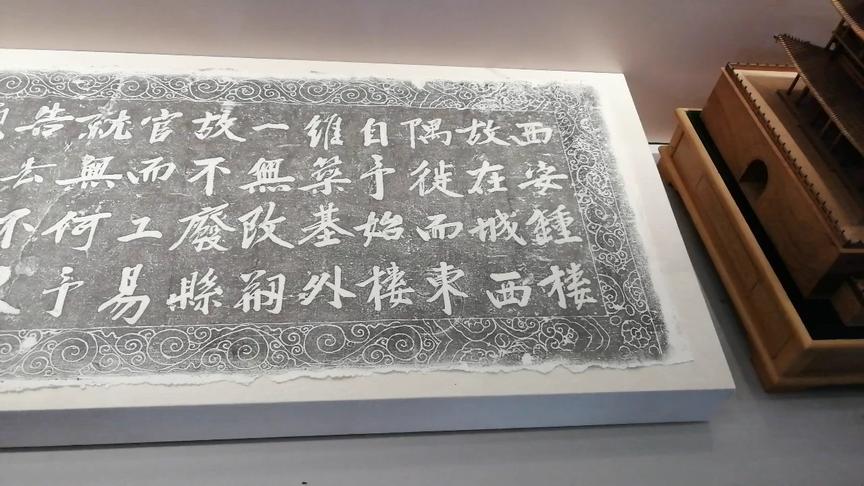 西安鍾樓
故在城西
隅徙而東
自予始樓
維築基外
一無改剏
故不廢縣
官而工易
就無何予
告去不